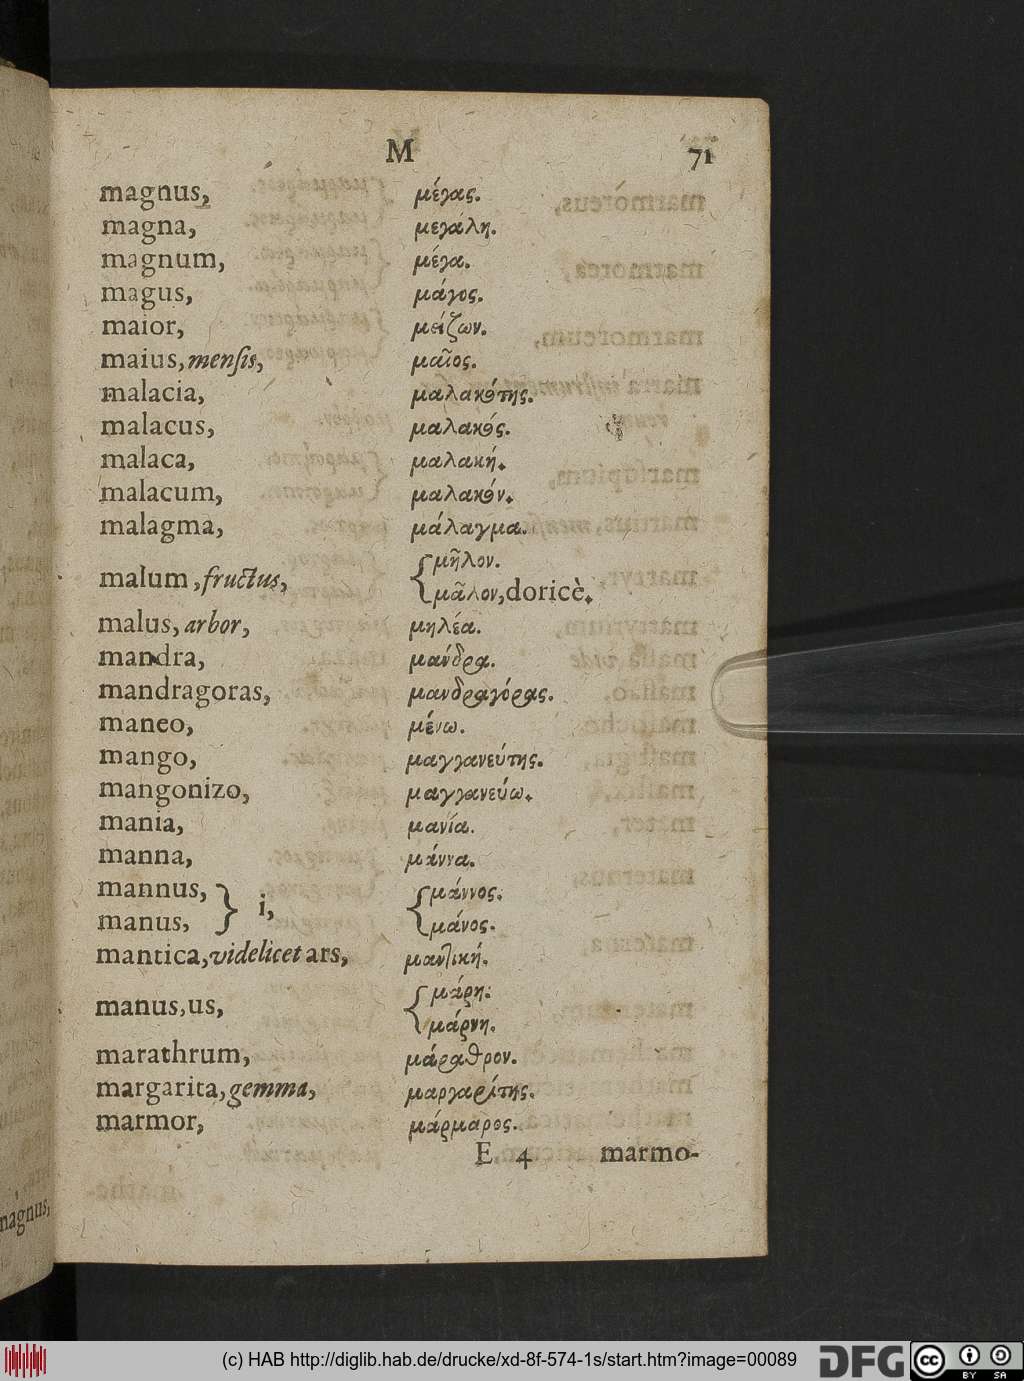 M 71
magnus, μέγας.
magna, μεγάλη.
magnum, μέγα.
magus, μάγος.
maior, μείζων.
maius, menſis, μαῖος.
malacia, μαλακότης.
malacus, μαλακός.
malaca, μαλακή.
malacum, μαλακόν.
malagma, μάλαγμα.
malum, fructus, { μῆλον.
μᾶλον, doricè.
malus, arbor, μηλέα.
mandra, μάνδρα.
mandragoras, μανδραγόρας.
maneo, μένω.
mango, μαγγανεύτης.
mangonizo, μαγγανεύω.
mania, μανία.
manna, μάννα.
mannus, } i, { μάννος.
manus, μάνος.
mantica, videlicet ars, μαντική.
manus, us, { μάρη.
μάρνη.
marathrum, μάραθρον.
margarita, gemma, μαργαρίτης.
marmor, μάρμαρος.
E 4 marmo-
magnus,
(c) HAB http://diglib.hab.de/drucke/xd-8f-574-1s/start.htm?image=00089 DFG cc BY SA